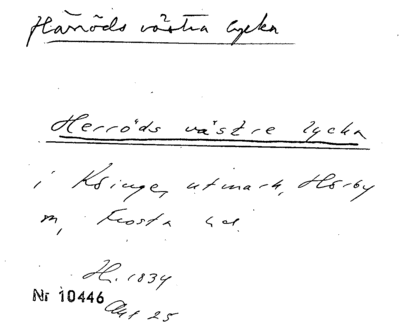 Härröds västra lycka
Herröds västre lycka
i Ksinge, utmark, Hörby
m, Frosta hd.
H. 1834
Nr 10446
Akt 25